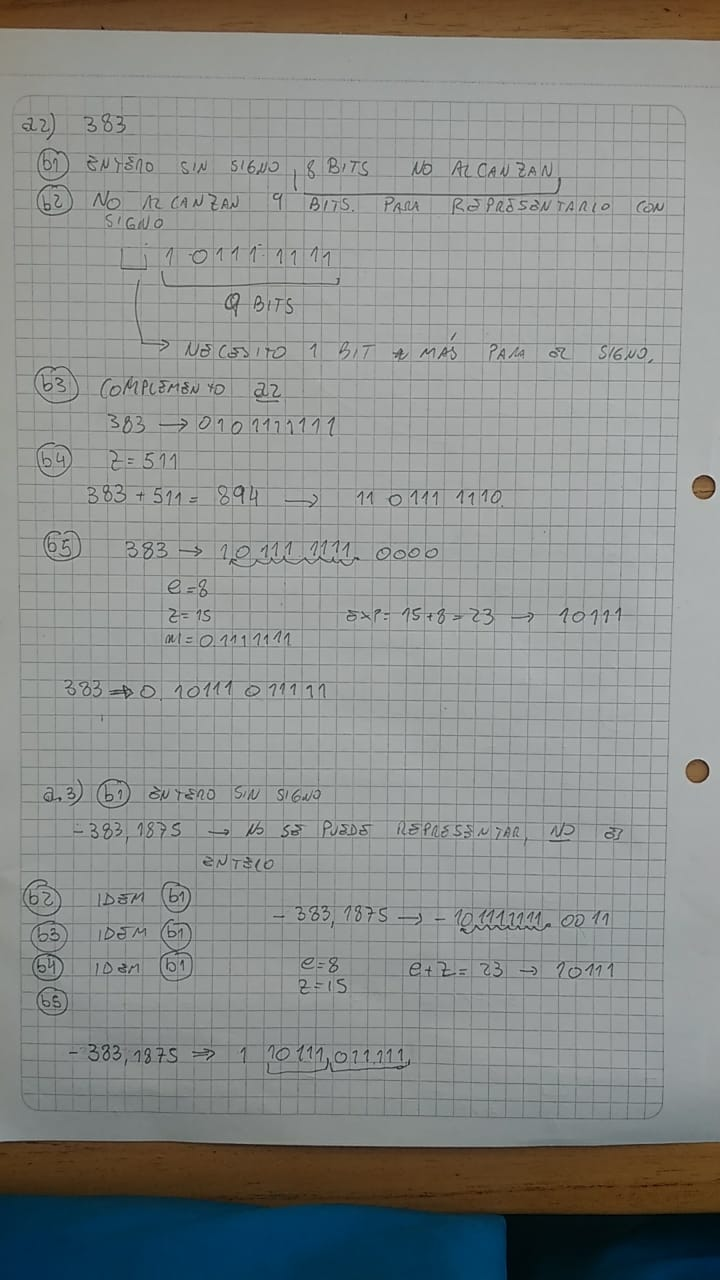 a2) 383
b1 ENTERO SIN SIGNO, 8 BITS NO ALCANZAN,
b2 NO ALCANZAN 9 BITS. PARA REPRESENTARLO CON
SIGNO
1 0111 1111
9 BITS
NECESITO 1 BIT MÁS PARA EL SIGNO.
b3 COMPLEMENTO a2
383 → 0101111111
b4 Z = 511
383 + 511 = 894 → 11 0111 1110.
b5 383 → 1,0 111 1111. 0000
e = 8
Z = 15 EXP = 15 + 8 = 23 → 10111
m = 0.1111111
383 → 0 10111 011111
a.3) b1 ENTERO SIN SIGNO
- 383,1875 → NO SE PUEDE REPRESENTAR, NO ES
ENTERO
b2 IDEM b1
- 383,1875 → - 101111111. 0011
b3 IDEM b1
b4 IDEM b1 e = 8 e + Z = 23 → 10111
Z = 15
b5
- 383,1875 ⇒ 1 10111, 011111,